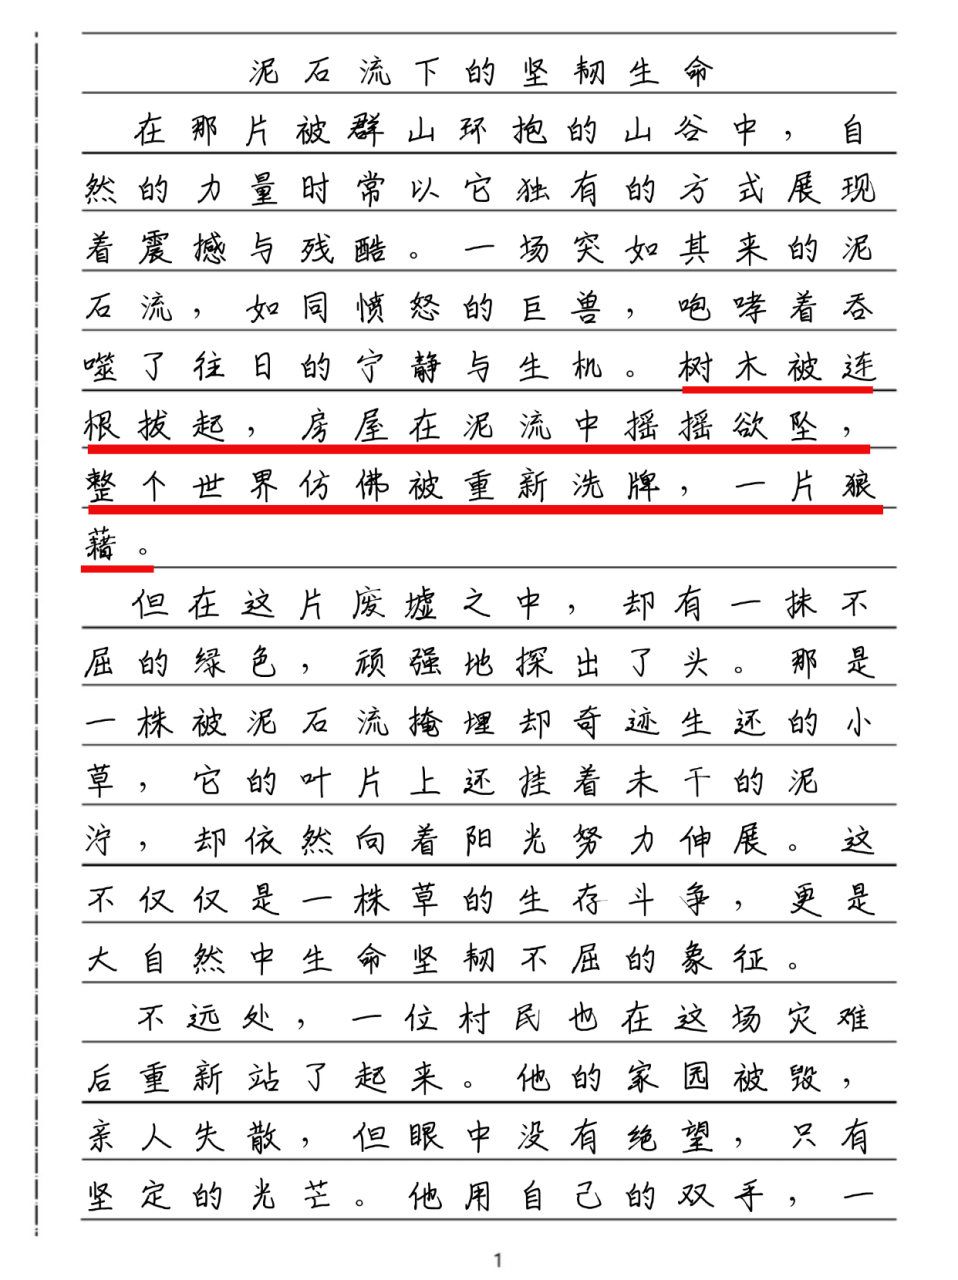 泥石流下的坚韧生命
在那片被群山环抱的山谷中，自
然的力量时常以它独有的方式展现
着震撼与残酷。一场突如其来的泥
石流，如同愤怒的巨兽，咆哮着吞
噬了往日的宁静与生机。树木被连
根拔起，房屋在泥流中摇摇欲坠，
整个世界仿佛被重新洗牌，一片狼
藉。
但在这片废墟之中，却有一抹不
屈的绿色，顽强地探出了头。那是
一株被泥石流掩埋却奇迹生还的小
草，它的叶片上还挂着未干的泥
泞，却依然向着阳光努力伸展。这
不仅仅是一株草的生存斗争，更是
大自然中生命坚韧不屈的象征。
不远处，一位村民也在这场灾难
后重新站了起来。他的家园被毁，
亲人失散，但眼中没有绝望，只有
坚定的光芒。他用自己的双手，一
1